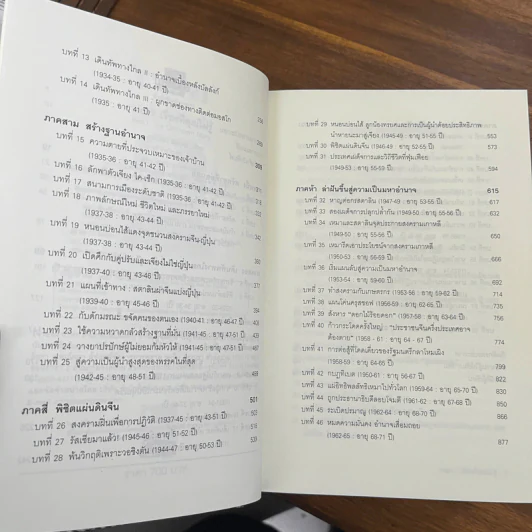 บทที่ 13 เดินทัพทางไกล II : อำนาจเบื้องหลังบัลลังก์
(1934-35 : อายุ 40-41 ปี)
บทที่ 14 เดินทัพทางไกล III : ผูกขาดช่องทางติดต่อมอสโก
(1935 : อายุ 41 ปี)
ภาคสาม สร้างฐานอำนาจ
บทที่ 15 ความตายที่ประจวบเหมาะของเจ้าบ้าน
(1935-36 : อายุ 41-42 ปี)
บทที่ 16 ลักพาตัวเจียง ไค-เช็ก (1935-36 : อายุ 41-42 ปี)
บทที่ 17 สนามการเมืองระดับชาติ (1936 : อายุ 42-43 ปี)
บทที่ 18 ภาพลักษณ์ใหม่ ชีวิตใหม่ และภรรยาใหม่
(1937-38 : อายุ 43-44 ปี)
บทที่ 19 หนอนบ่อนไส้แดงจุดชนวนสงครามจีนญี่ปุ่น
(1937-38 : อายุ 43-44 ปี)
บทที่ 20 เปิดศึกกับคู่ปรับและเจียงไม่ใช่ญี่ปุ่น
(1937-40 : อายุ 43-46 ปี)
บทที่ 21 แผนที่เข้าทาง : สตาลินผ่าจีนแบ่งญี่ปุ่น
(1939-40 : อายุ 45-46 ปี)
บทที่ 22 กับดักมรณะ ขจัดคนของตนเอง (1940-41 : อายุ 46-47 ปี)
บทที่ 23 ใช้ความหวาดกลัวสร้างฐานที่มั่น (1941-45 : อายุ 47-51 ปี)
บทที่ 24 วางยาปรปักษ์ผู้ไม่ยอมก้มหัวให้ (1941-45 : อายุ 47-51 ปี)
บทที่ 25 สู่ความเป็นผู้นำสูงสุดของพรรคในที่สุด
(1942-45 : อายุ 48-51 ปี)
ภาคสี่ พิชิตแผ่นดินจีน 501
บทที่ 26 สงครามฝิ่นเพื่อการปฏิวัติ (1937-45 : อายุ 43-51 ปี)
บทที่ 27 รัสเซียมาแล้ว! (1945-46 : อายุ 51-52 ปี)
บทที่ 28 พ้นวิกฤติเพราะวอชิงตัน (1944-47 : อายุ 50-53 ปี)
บทที่ 29 หนอนบ่อนไส้ ลูกน้องทรยศและการเป็นผู้นำด้อยประสิทธิภาพ
นำหายนะมาสู่เจียง (1945-49 : อายุ 51-55 ปี) 553
บทที่ 30 พิชิตแผ่นดินจีน (1946-49 : อายุ 52-55 ปี)
บทที่ 31 ประเทศเผด็จการและวิถีชีวิตที่ฟุ่มเฟือย
(1949-53 : อายุ 55-59 ปี) 594
ภาคห้า ล่าฝันขึ้นสู่ความเป็นมหาอำนาจ 615
บทที่ 32 หาญต่อกรสตาลิน (1947-49 : อายุ 53-55 ปี) 617
บทที่ 33 สองเผด็จการปลุกปล้ำกัน (1949-50 : อายุ 55-56 ปี)
บทที่ 34 เหมาและสตาลินจุดประกายสงครามเกาหลี
(1949-50 : อายุ 55-56 ปี) 650
บทที่ 35 เหมารีดเอาประโยชน์จากสงครามเกาหลี
(1950-53 : อายุ 56-59 ปี)
บทที่ 36 เริ่มแผนลับสู่ความเป็นมหาอำนาจ
(1953-54 : อายุ 59-60 ปี) 692
บทที่ 37 ทำสงครามกับเกษตรกร (1953-56 : อายุ 59-62 ปี) 714
บทที่ 38 แผนโค่นครุสชอฟ (1956-59 : อายุ 62-65 ปี) 735
บทที่ 39 สังหาร "ดอกไม้ร้อยดอก" 758
บทที่ 40 ก้าวกระโดดครั้งใหญ่ : "ประชาชนจีนครึ่งประเทศอาจ
ต้องตาย" (1958-61 : อายุ 64-67 ปี) 774
บทที่ 41 การต่อสู้ที่โดดเดี่ยวของรัฐมนตรีกลาโหมเผิง
799
บทที่ 42 กบฏทิเบต
บทที่ 43 830
บทที่ 44 850
บทที่ 45 ระเบิดปรมาณู 866
บทที่ 46 หมดความมั่นคง อำนาจเสื่อมถอย
(1962-65 : อายุ 68-71 ปี) 877